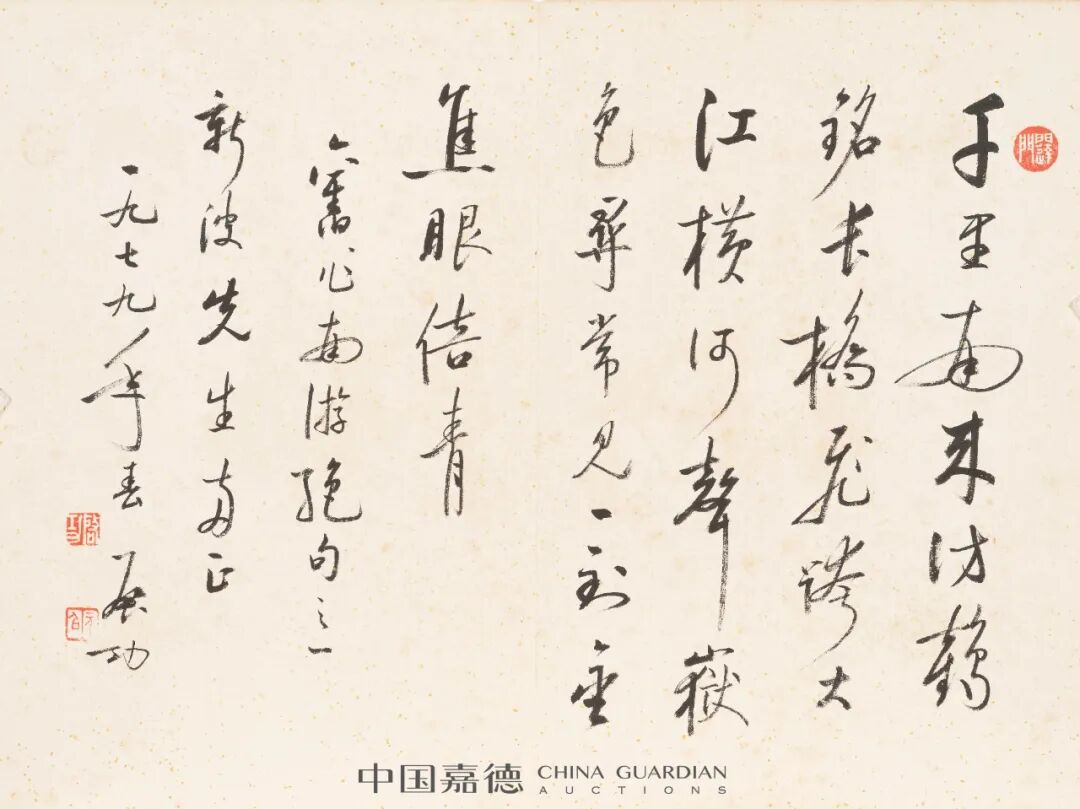 千里南来访鹤
铭长桥飞跨大
江横河声嶽
色尋常见一到金
焦眼倍青
舊作南游绝句之一
新波先生两正
一九七九年春 启功
中国嘉德 CHINA GUARDIAN
AUCTIONS